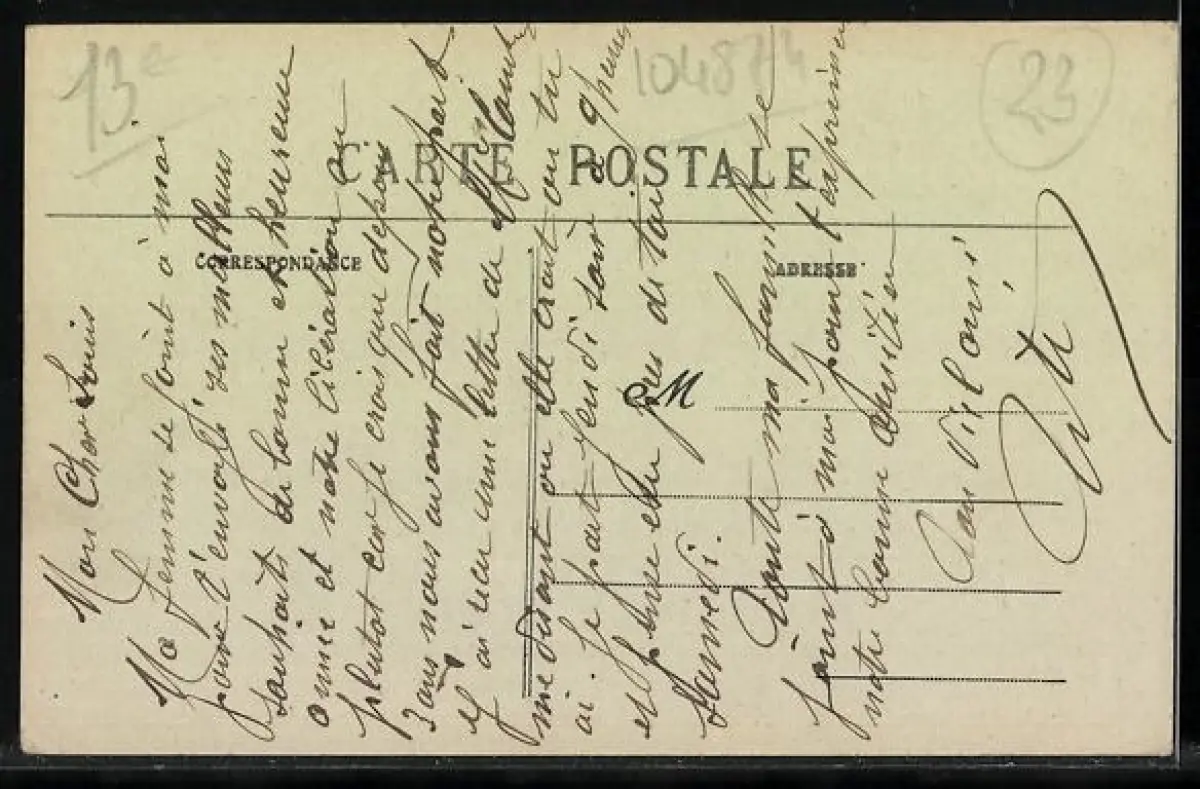 13e
104874
23
CARTE POSTALE
CORRESPONDANCE
ADRESSE
M
Mon Cher Louis
Ma femme se joint à moi
pour t'envoyé ses meilleurs
souhaits de bonne et heureuse
année et notre libération ou
plutot car je crois que depuis
3 ans nous avons fait notre part
J'ai reçu une lettre de
me disant ou elle crait ou tu
ai. Je part jeudi soir a 9 heures
et pense etre pres de toi
Samedi.
Toute ma famille se
joint à moi pour t'exprimer
notre bonne amitiée
Ton vieil ami